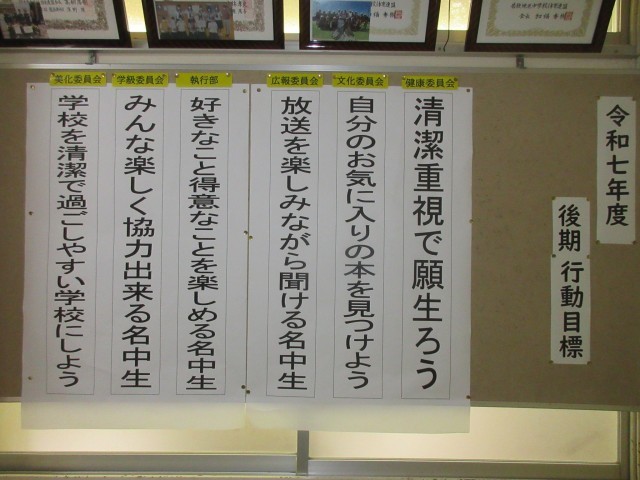 令和七年度
後期 行動目標
健康委員会
清潔重視で願生ろう
文化委員会
自分のお気に入りの本を見つけよう
広報委員会
放送を楽しみながら聞ける名中生
執行部
好きなこと得意なことを楽しめる名中生
学級委員会
みんな楽しく協力出来る名中生
美化委員会
学校を清潔で過ごしやすい学校にしよう